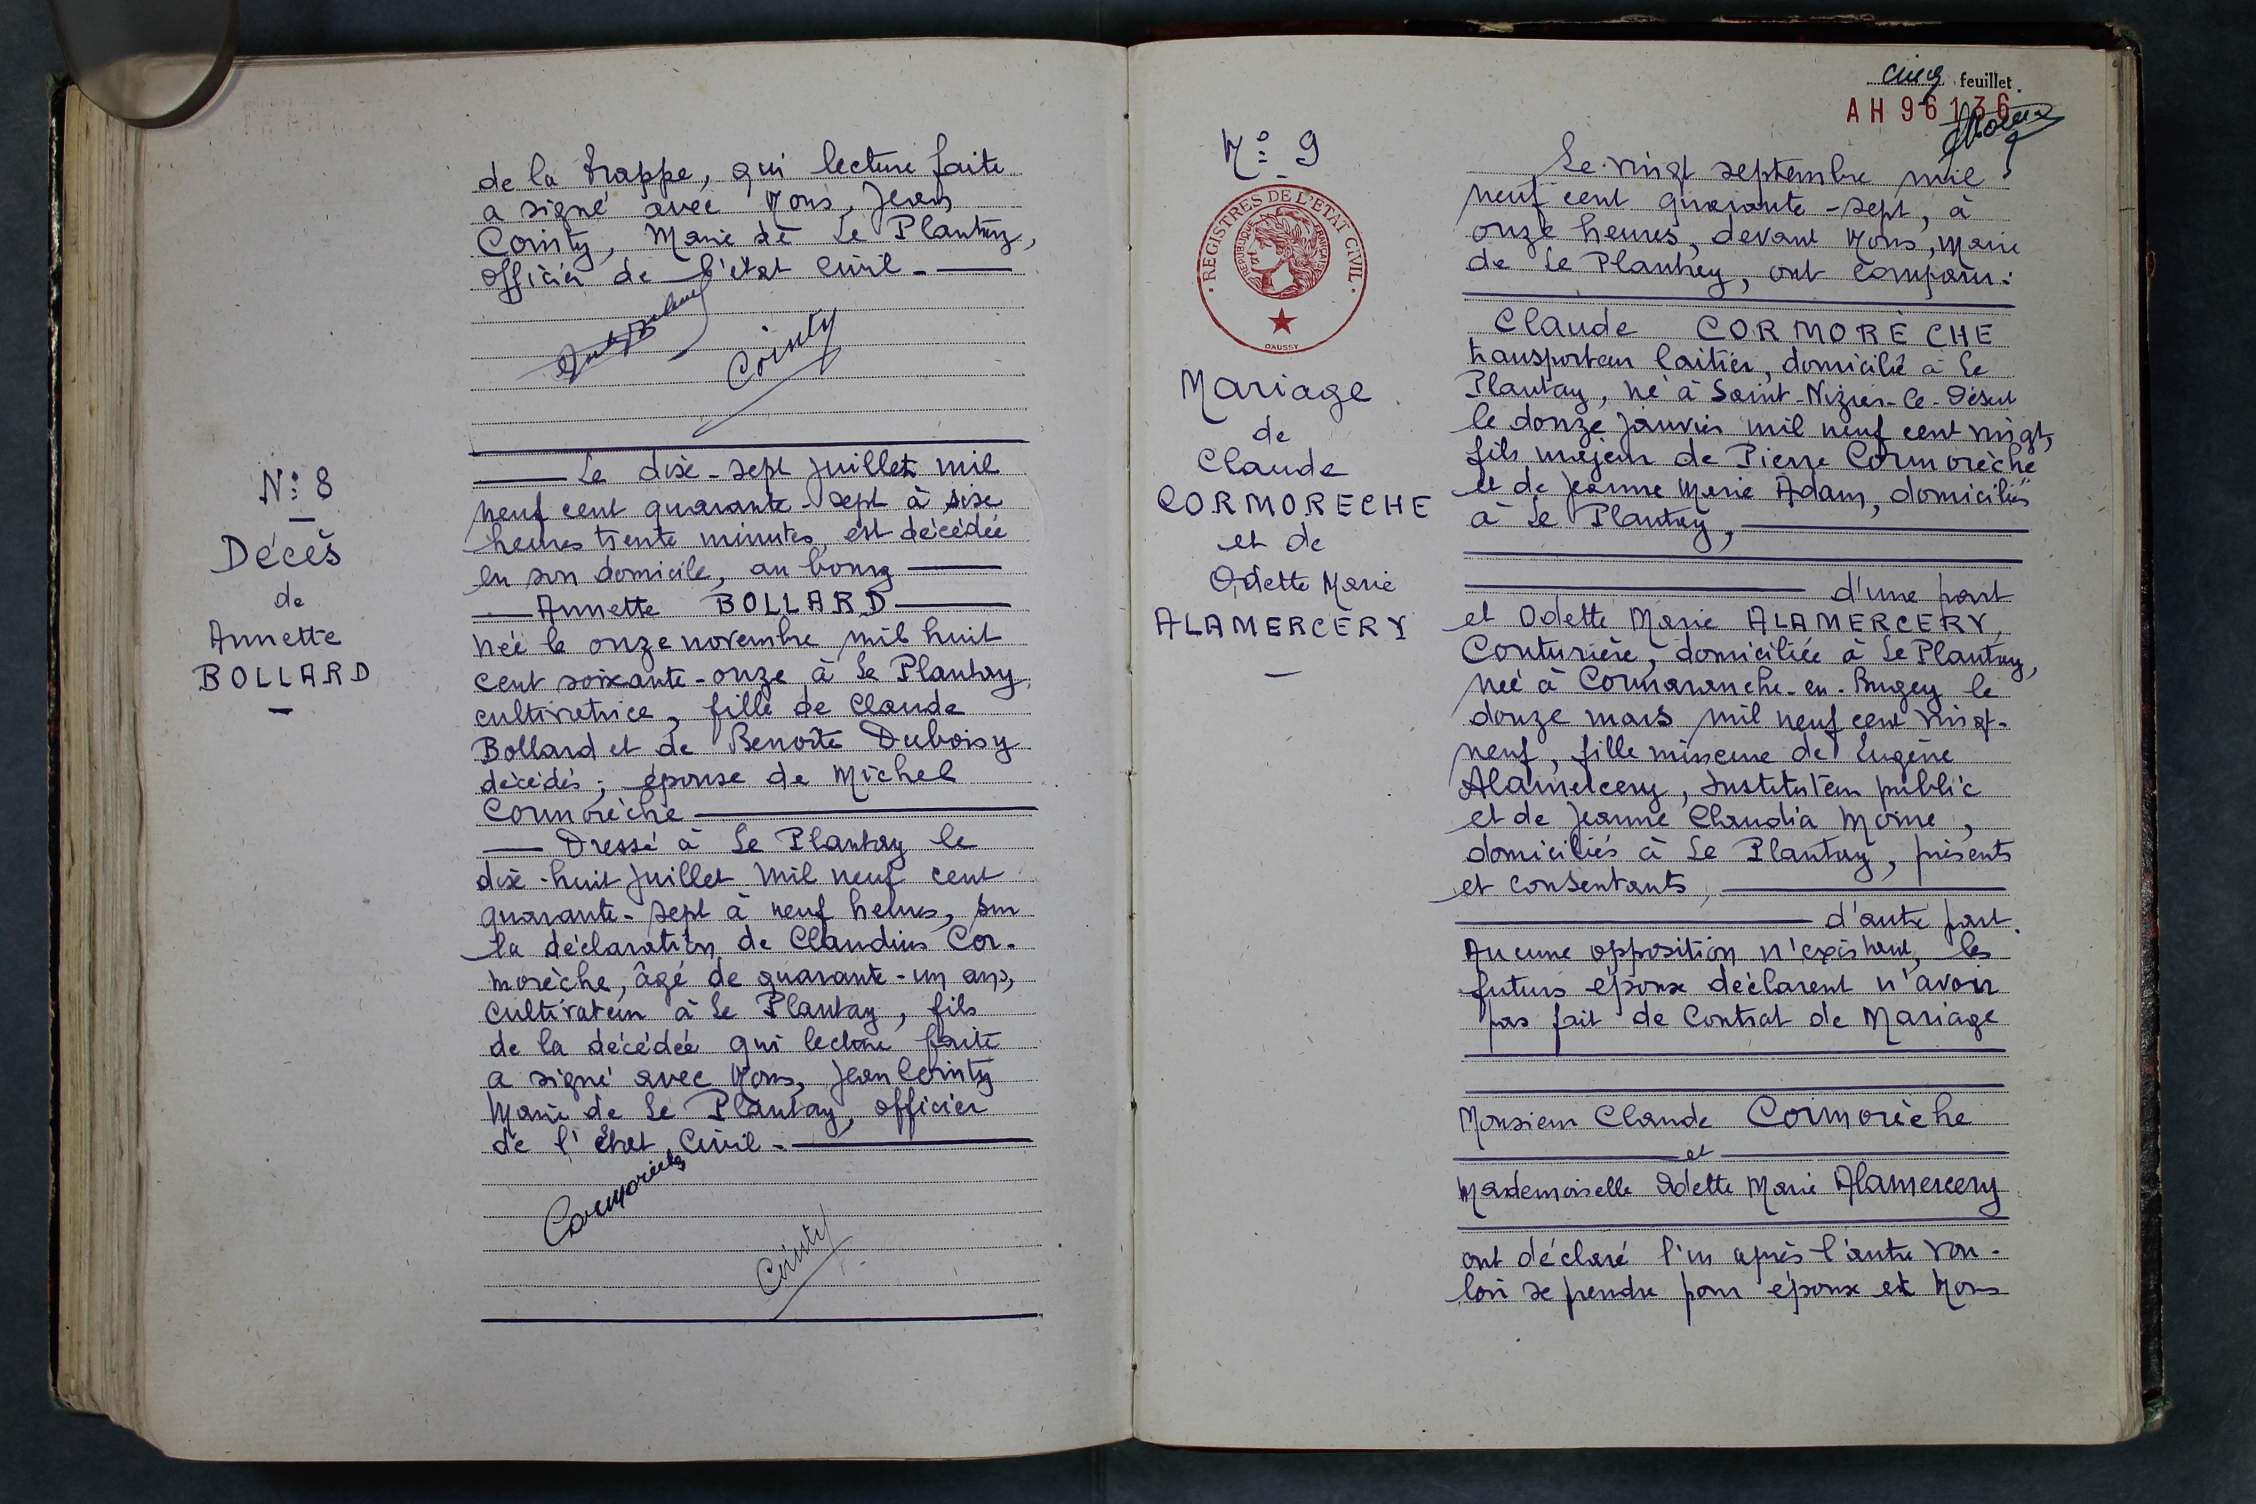 de la Trappe, qui lecture faite
a signé avec Nous, Jean
Cointy, Maire de Le Plantay,
officier de l'état civil. —
Cointy
N° 8
Décès
de
Annette
BOLLARD
— Le dix-sept juillet mil
neuf cent quarante-sept à six
heures trente minutes, est décédée
en son domicile, au bourg —
— Annette BOLLARD —
née le onze novembre mil huit
cent soixante-onze à Le Plantay,
cultivatrice, fille de Claude
Bollard et de Benoîte Duboisy
décédés; épouse de Michel
Cormorèche —
— Dressé à Le Plantay le
dix-huit juillet mil neuf cent
quarante-sept à neuf heures, sur
la déclaration de Claudius Cor-
morèche, âgé de quarante-un ans,
cultivateur à Le Plantay, fils
de la décédée qui lecture faite
a signé avec Nous, Jean Cointy
Maire de Le Plantay, officier
de l'état Civil. —
Cormorèche
Cointy
cinq feuillet.
AH 96136
N° 9
REGISTRES DE L'ETAT CIVIL
REPUBLIQUE FRANÇAISE
DAUSSY
Mariage
de
Claude
CORMORECHE
et de
Odette Marie
ALAMERCERY
Le vingt septembre mil
neuf cent quarante-sept, à
onze heures, devant Nous, Maire
de Le Plantay, ont comparu:
Claude CORMORÈCHE
transporteur laitier, domicilié à Le
Plantay, né à Saint-Nizier-le-Désert
le douze janvier mil neuf cent vingt,
fils majeur de Pierre Cormorèche
et de Jeanne Marie Adam, domiciliés
à Le Plantay, —
— d'une part
et Odette Marie ALAMERCERY,
Couturière, domiciliée à Le Plantay,
née à Cormaranche-en-Bugey le
douze mars mil neuf cent vingt-
neuf, fille mineure de Eugène
Alamercery, Instituteur public
et de Jeanne Claudia Moine,
domiciliés à Le Plantay, présents
et consentants, —
— d'autre part.
Aucune opposition n'existant, les
futurs époux déclarent n'avoir
pas fait de Contrat de Mariage
Monsieur Claude Cormorèche
— et —
Mademoiselle Odette Marie Alamercery
ont déclaré l'un après l'autre vou-
loir se prendre pour époux et Nous